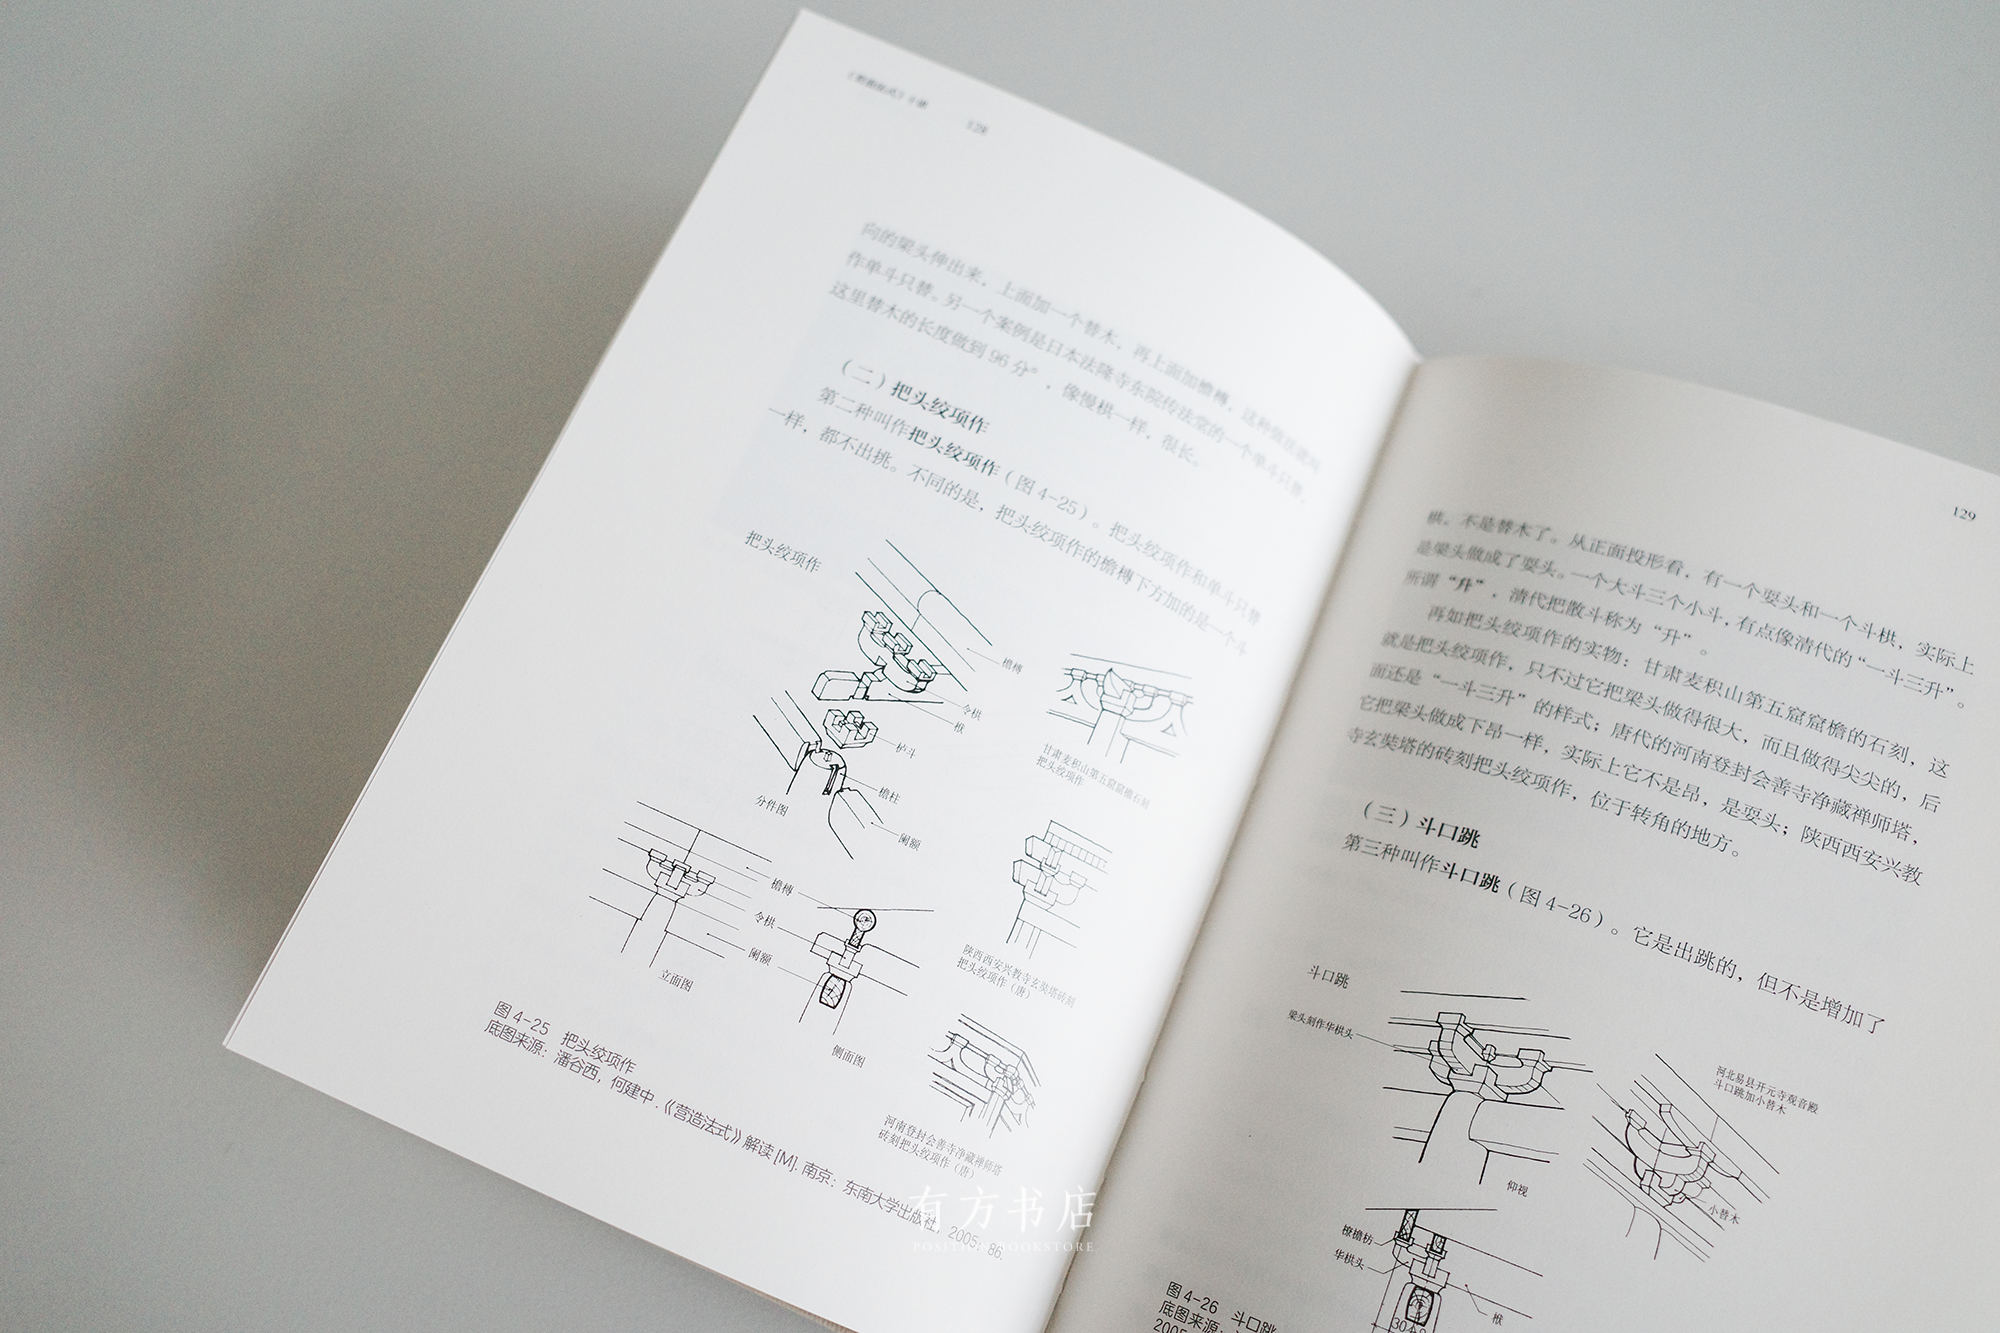 128
向的梁头伸出来，上面加一个替木，再上面加檐槫，这种做法就叫
作单斗只替。另一个案例是日本法隆寺东院传法堂的一个单斗只替，
这里替木的长度做到96分°，像慢栱一样，很长。
（二）把头绞项作
第二种叫作把头绞项作（图4-25）。把头绞项作和单斗只替
一样，都不出挑。不同的是，把头绞项作的檐槫下方加的是一个斗
把头绞项作
檐槫
令栱
栿
栌斗
檐柱
阑额
分件图
檐槫
令栱
阑额
立面图
侧面图
甘肃麦积山第五窟窟檐石刻
把头绞项作
陕西西安兴教寺玄奘塔砖刻
把头绞项作（唐）
河南登封会善寺净藏禅师塔
砖刻把头绞项作（唐）
图4-25 把头绞项作
底图来源：潘谷西，何建中.《营造法式》解读[M]. 南京：东南大学出版社，2005：86.
129
栱，不是替木了。从正面投形看，有一个耍头和一个斗栱，实际上
是梁头做成了耍头。一个大斗三个小斗，有点像清代的“一斗三升”。
所谓“升”，清代把散斗称为“升”。
再如把头绞项作的实物：甘肃麦积山第五窟窟檐的石刻，这
就是把头绞项作，只不过它把梁头做得很大，而且做得尖尖的，后
面还是“一斗三升”的样式；唐代的河南登封会善寺净藏禅师塔，
它把梁头做成下昂一样，实际上它不是昂，是耍头；陕西西安兴教
寺玄奘塔的砖刻把头绞项作，位于转角的地方。
（三）斗口跳
第三种叫作斗口跳（图4-26）。它是出跳的，但不是增加了
斗口跳
梁头刻作华栱头
仰视
河北易县开元寺观音殿
斗口跳加小替木
小替木
橑檐枋
华栱头
栿
图4-26 斗口跳
底图来源：
2005
有方书店
POSITION BOOKSTORE